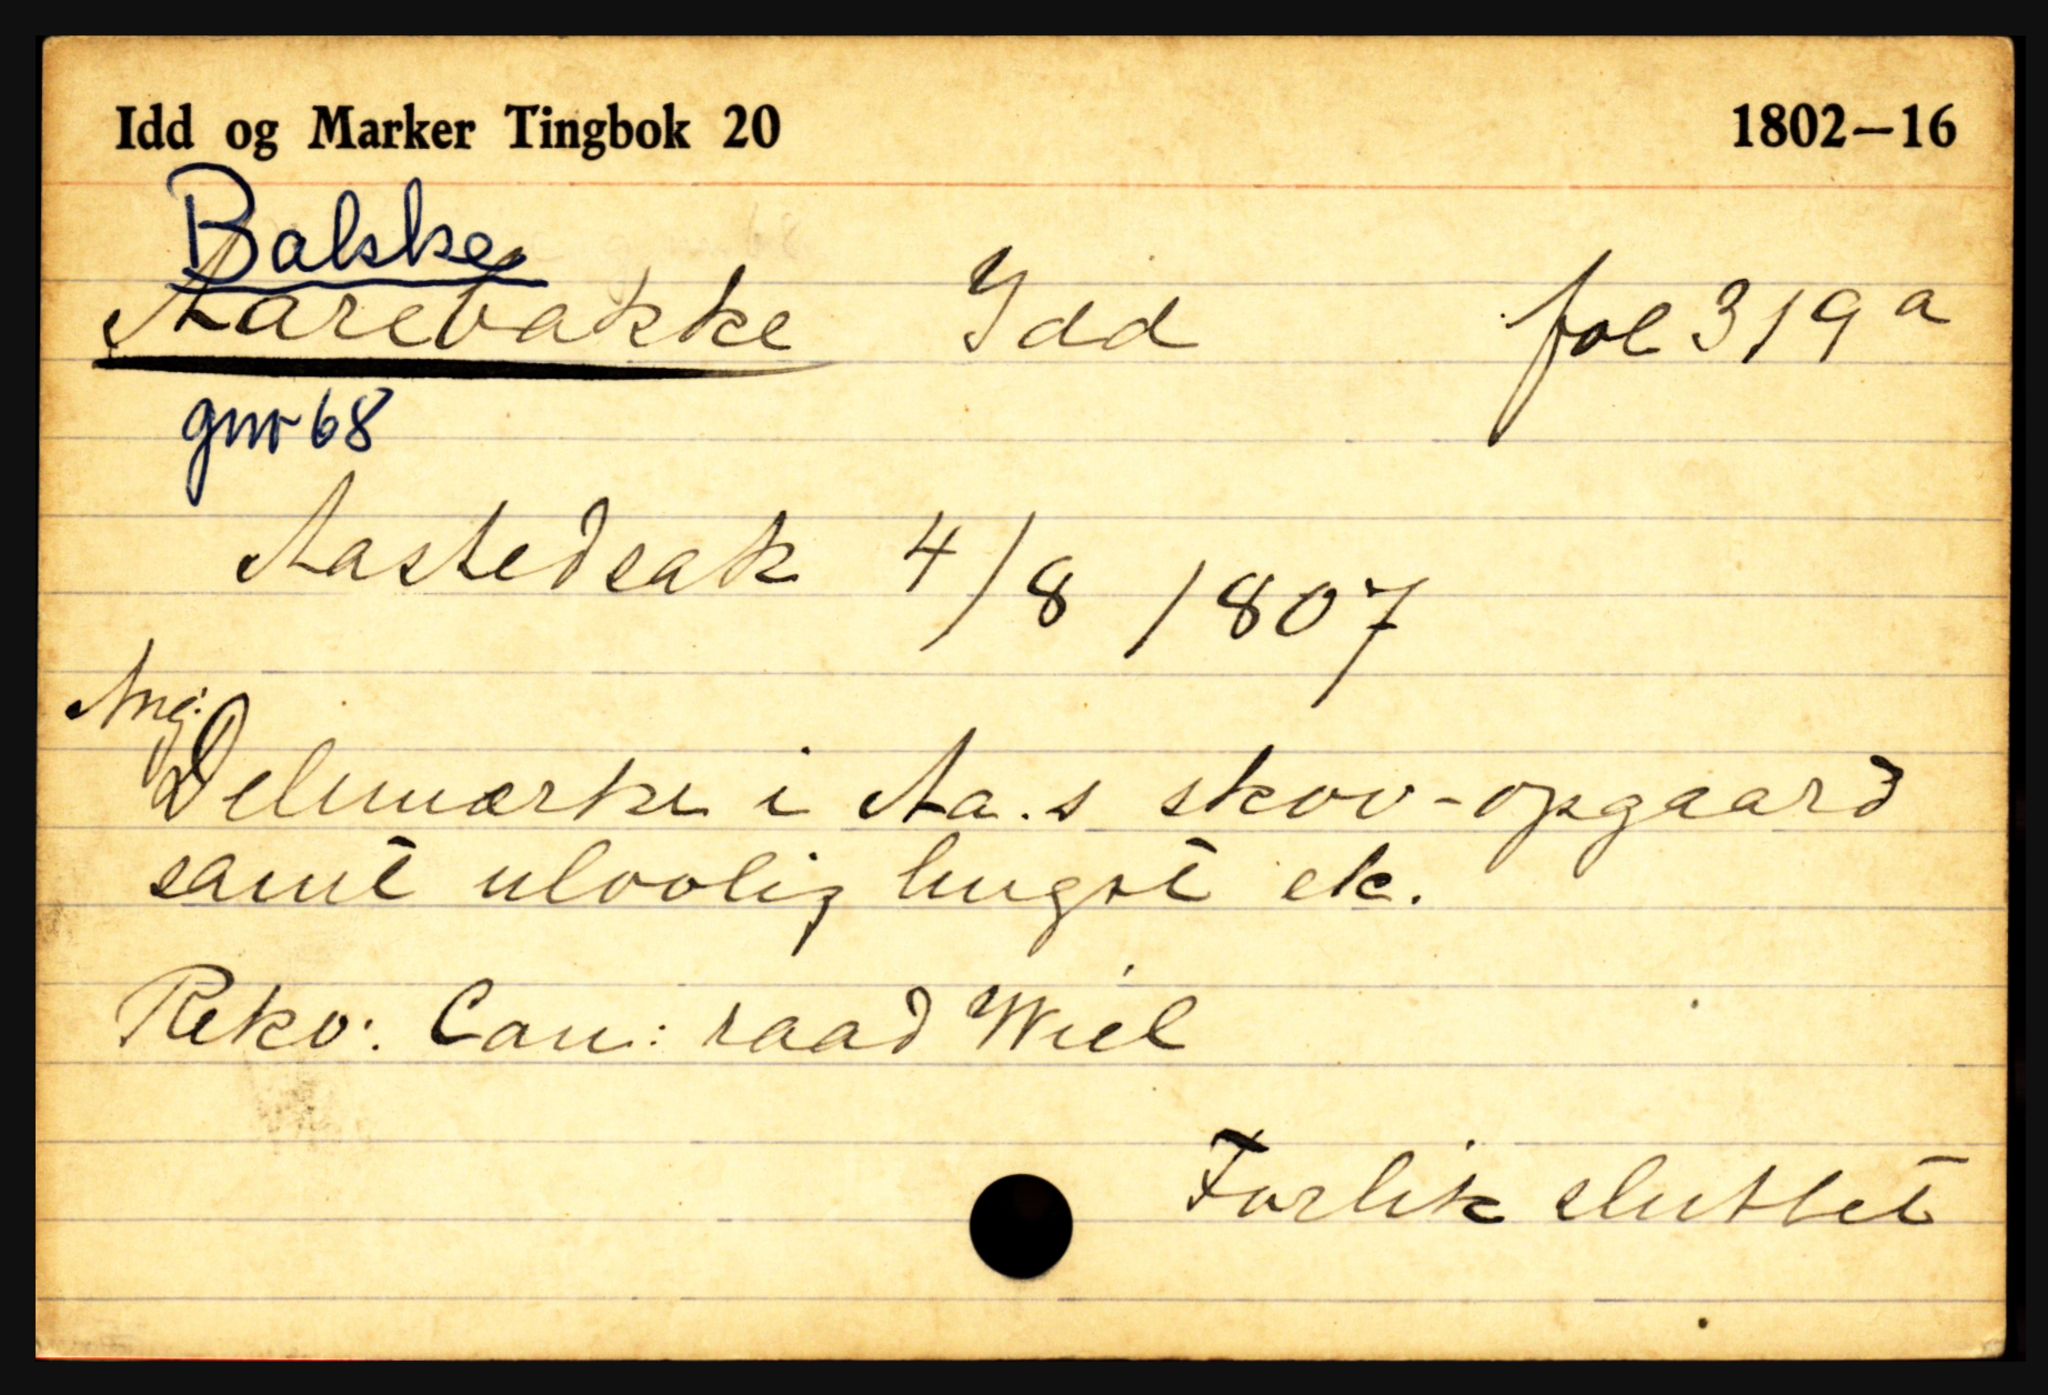 Idd og Marker Tingbok 20 1802—16
Balske
Aarebakke Idd fol 319 a
gnr 68
Aastedsak 4/8 1807
Ang:
Delemærke i Aa.s skov-opgaard
samt ulovlig hugst etc.
Rekv: Can: raad Wiel
Forlik sluttet